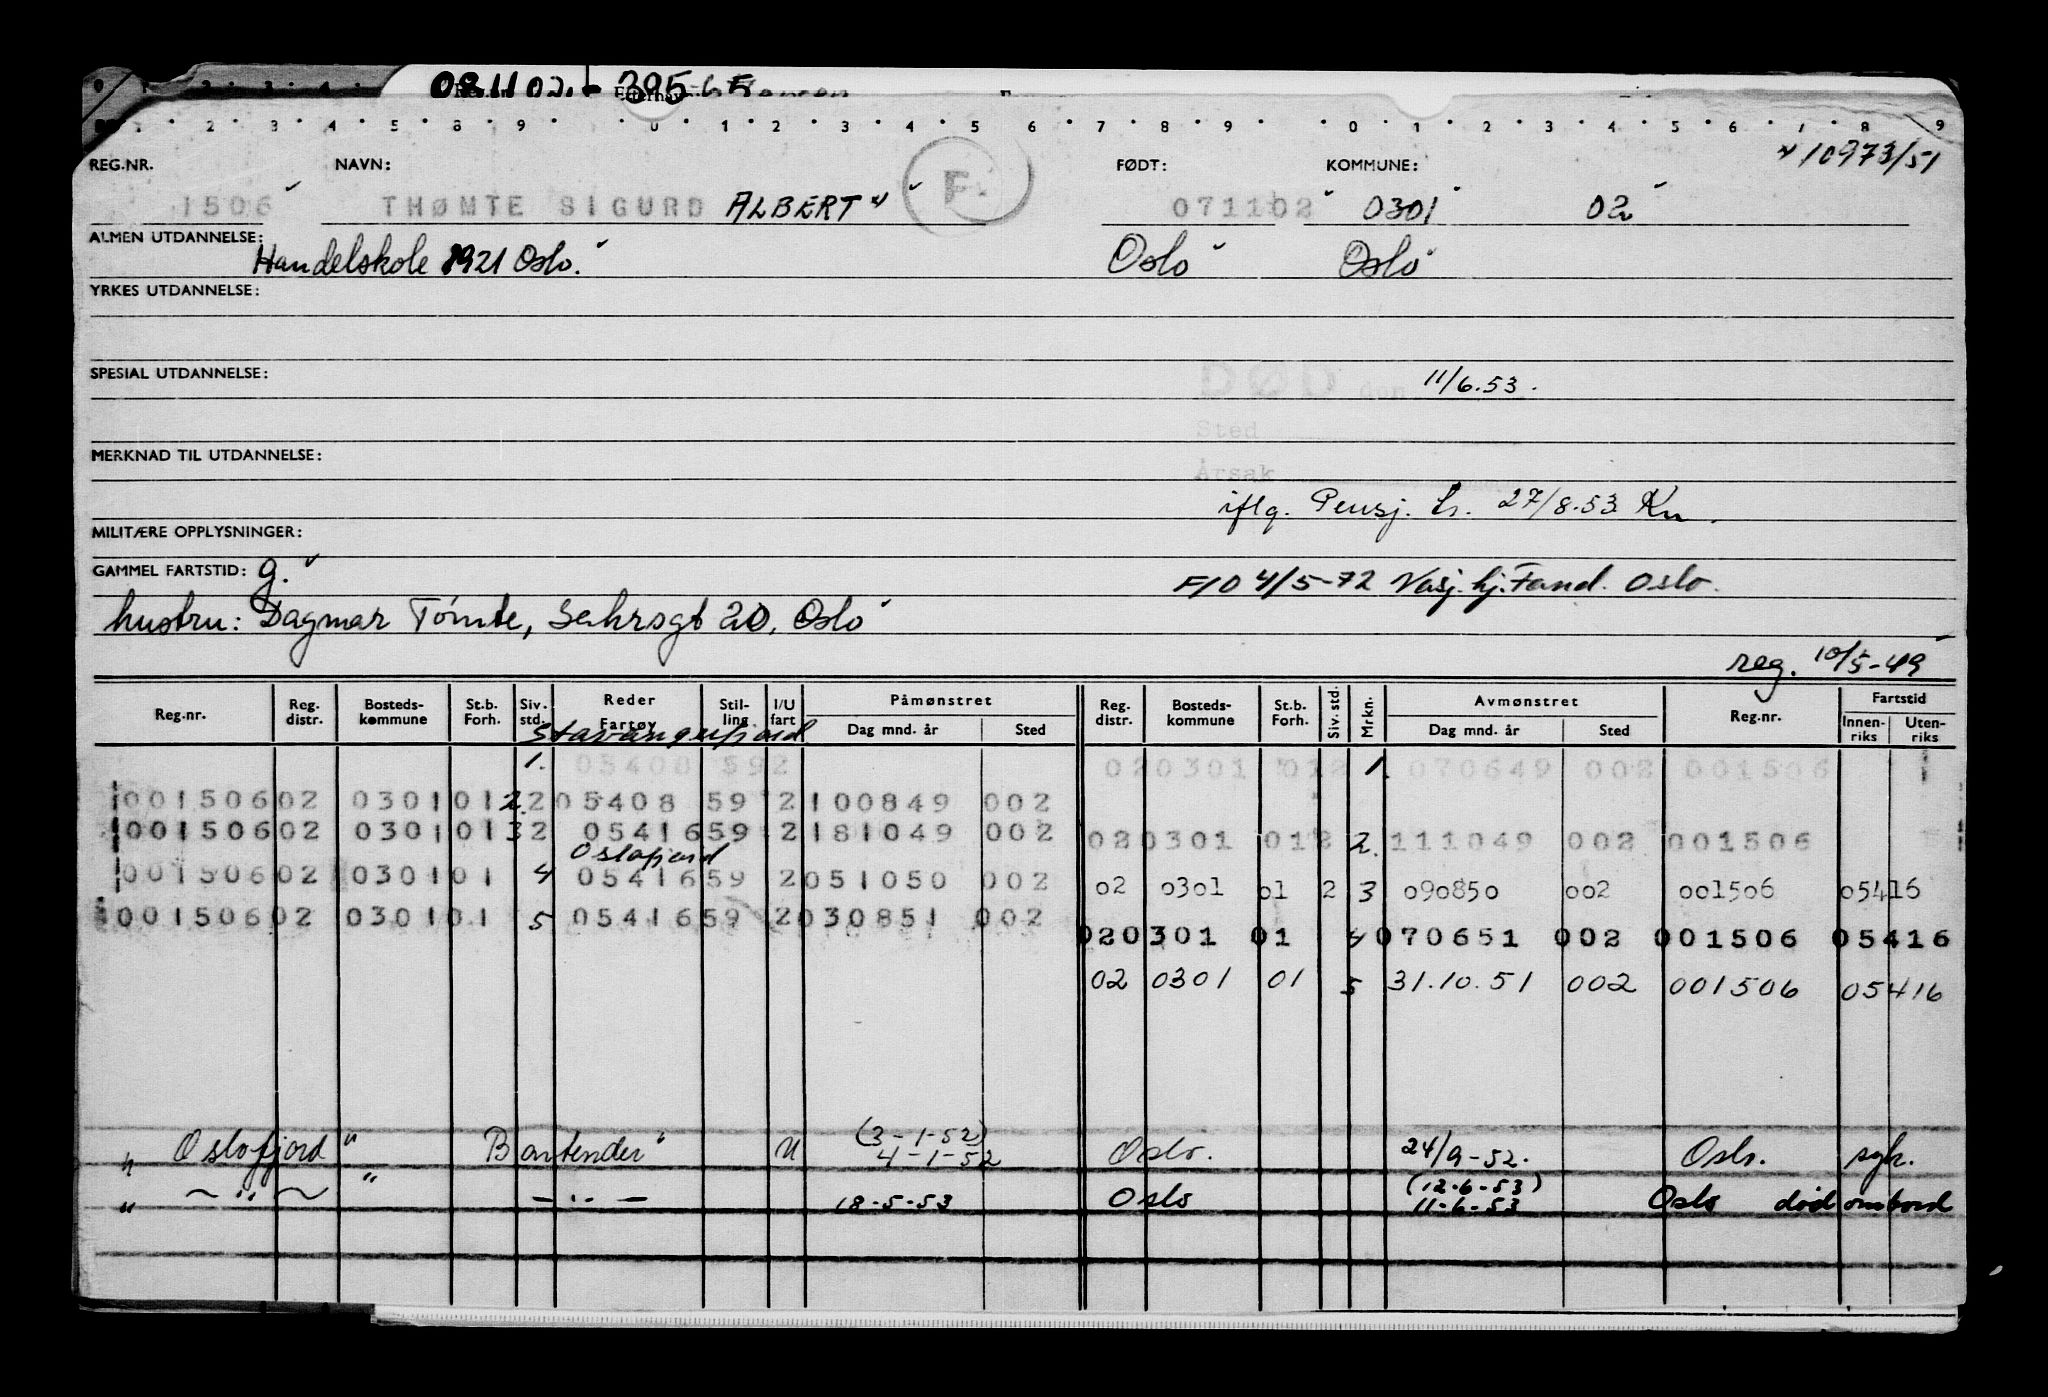 081102 395
1 2 3 4 5 8 9 0 1 2 3 4 5 6 7 8 9 0 1 2 3 4 5 6 7 8 9
REG.NR. NAVN: F. FØDT: KOMMUNE: 10973/51
1506 THØMTE SIGURD ALBERT 071102 0301 02
ALMEN UTDANNELSE: Handelskole 1921 Oslo. Oslo Oslo
YRKES UTDANNELSE:
SPESIAL UTDANNELSE: DØD den 11/6.53.
Sted
MERKNAD TIL UTDANNELSE:
Årsak
iflg. Pensj. tr. 27/8.53 Kn.
MILITÆRE OPPLYSNINGER:
GAMMEL FARTSTID: g. F/O 4/5-72 Vasj. hj. Fand. Oslo.
hustru: Dagmar Tömte, Sehrsgt 20, Oslo
reg. 10/5-49
Reg.nr. Reg. distr. Bosteds- kommune St.b. Forh. Siv. std. Reder Fartøy Stil- ling I/U fart Påmønstret Dag mnd. år Sted Reg. distr. Bosteds- kommune St.b. Forh. Siv. std. Mrkn. Avmønstret Dag mnd. år Sted Reg.nr. Fartstid Innen- riks Uten- riks
Stavangerfjord
1. 05408 592 020301 012 1. 070649 002 001506
00150602 0301 01 2. 2 05408 59 2 100849 002
00150602 0301 01 3 2 05416 59 2 181049 002 020301 012 2. 111049 002 001506
Oslofjord
00150602 0301 01 4 05416 59 2 051050 002 02 0301 01 2 3 090850 002 001506 05416
00150602 0301 01 5 05416 59 2 030851 002
020301 01 4 070651 002 001506 05416
02 0301 01 5 31.10.51 002 001506 05416
(3-1-52)
" Oslofjord " Bartender " U 4-1-52 Oslo. 24/9-52. Oslo. syk.
(12.6-53)
" ~ " ~ " - " - 18-5-53 Oslo 11-6-53 Oslo død ombord